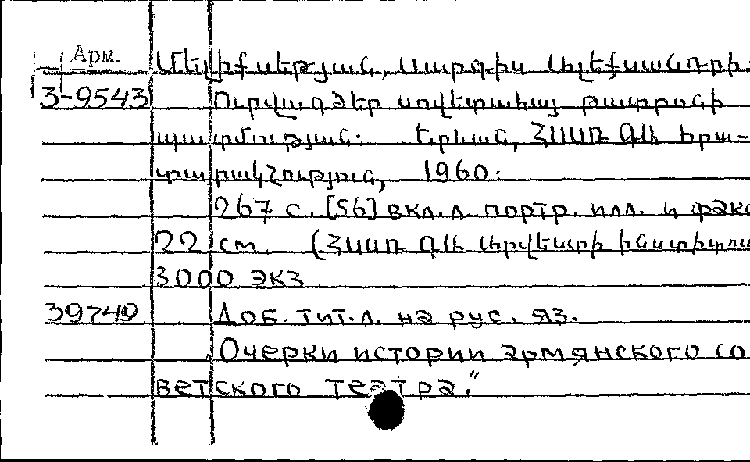 Арм.
Մելիքսեթյան, Սարգիս Ալեքսանդրի
3-9543 Ուրվագծեր սովետահայ թատրոնի
պատմության. Երևան, ՀՍՍՌ ԳԱ հրա-
տարակչություն, 1960.
267 с. [56] вкл. л. портр. илл. и факс
22 см. (ՀՍՍՌ ԳԱ Արվեստի ինստիտու
3000 экз
39740 Доб. тит. л. на рус. яз.
Очерки истории армянского со
ветского театра."